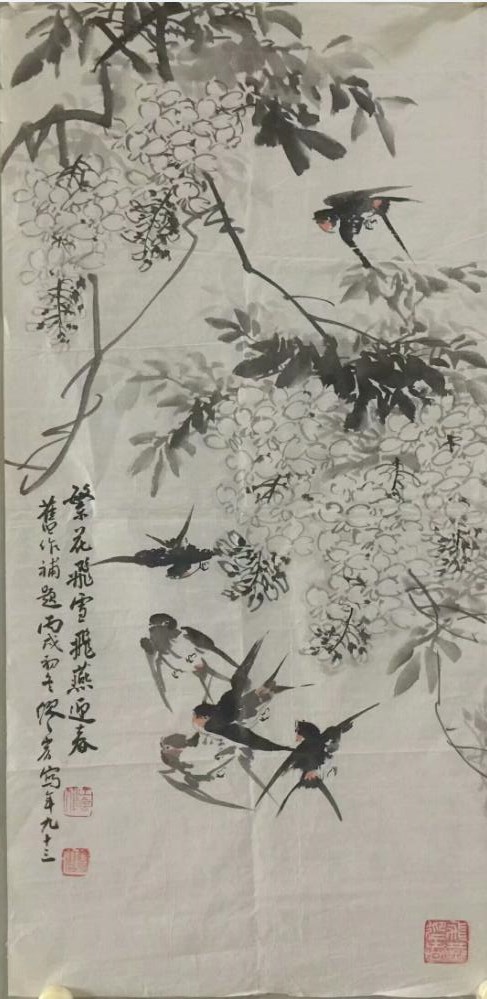 繁花飛雪飛燕迎春
舊作補題丙戌初冬缪宏寫年九十三